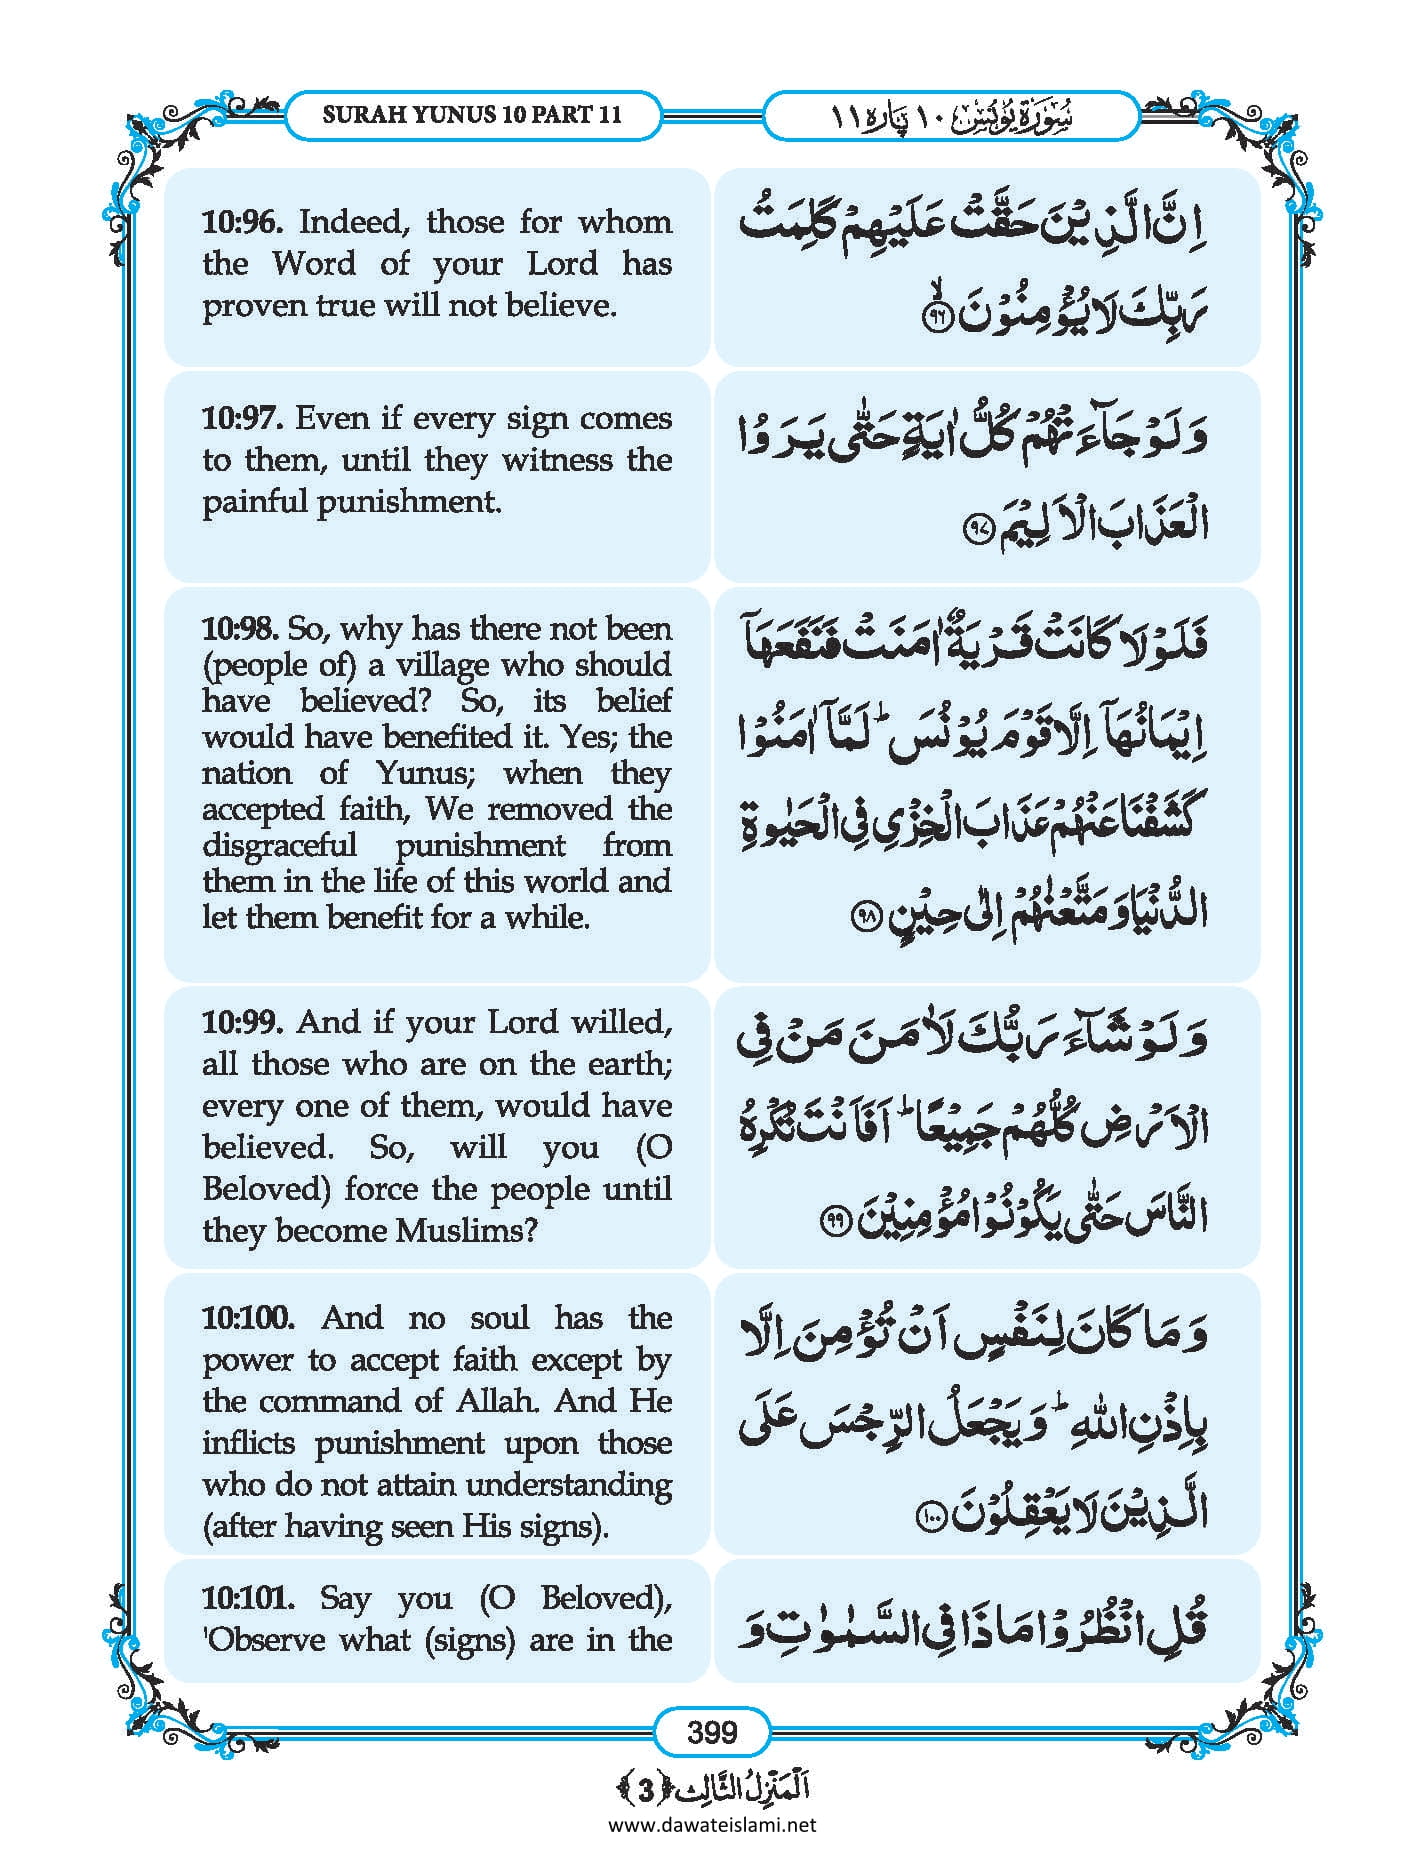 SURAH YUNUS 10 PART 11
سُوْرَةُ يُوْنُس ١٠ پَارہ ١١
10:96. Indeed, those for whom
the Word of your Lord has
proven true will not believe.
اِنَّ الَّذِیْنَ حَقَّتْ عَلَیْهِمْ كَلِمَتُ
رَبِّكَ لَا یُؤْمِنُوْنَۙ ﴿۹۶﴾
10:97. Even if every sign comes
to them, until they witness the
painful punishment.
وَ لَوْ جَآءَتْهُمْ كُلُّ اٰیَةٍ حَتّٰى یَرَوُا
الْعَذَابَ الْاَلِیْمَ ﴿۹۷﴾
10:98. So, why has there not been
(people of) a village who should
have believed? So, its belief
would have benefited it. Yes; the
nation of Yunus; when they
accepted faith, We removed the
disgraceful punishment from
them in the life of this world and
let them benefit for a while.
فَلَوْ لَا كَانَتْ قَرْیَةٌ اٰمَنَتْ فَنَفَعَهَاۤ
اِیْمَانُهَاۤ اِلَّا قَوْمَ یُوْنُسَؕ لَمَّاۤ اٰمَنُوْا
كَشَفْنَا عَنْهُمْ عَذَابَ الْخِزْیِ فِی الْحَیٰوةِ
الدُّنْیَا وَ مَتَّعْنٰهُمْ اِلٰى حِیْنٍ ﴿۹۸﴾
10:99. And if your Lord willed,
all those who are on the earth;
every one of them, would have
believed. So, will you (O
Beloved) force the people until
they become Muslims?
وَ لَوْ شَآءَ رَبُّكَ لَاٰمَنَ مَنْ فِی
الْاَرْضِ كُلُّهُمْ جَمِیْعًاؕ اَفَاَنْتَ تُكْرِهُ
النَّاسَ حَتّٰى یَكُوْنُوْا مُؤْمِنِیْنَ ﴿۹۹﴾
10:100. And no soul has the
power to accept faith except by
the command of Allah. And He
inflicts punishment upon those
who do not attain understanding
(after having seen His signs).
وَ مَا كَانَ لِنَفْسٍ اَنْ تُؤْمِنَ اِلَّا
بِاِذْنِ اللّٰهِؕ وَ یَجْعَلُ الرِّجْسَ عَلَى
الَّذِیْنَ لَا یَعْقِلُوْنَ ﴿۱۰۰﴾
10:101. Say you (O Beloved),
'Observe what (signs) are in the
قُلِ انْظُرُوْا مَا ذَا فِی السَّمٰوٰتِ وَ
399
اَلْمَنْزِلُ الثَّالِث ﴿3﴾
www.dawateislami.net